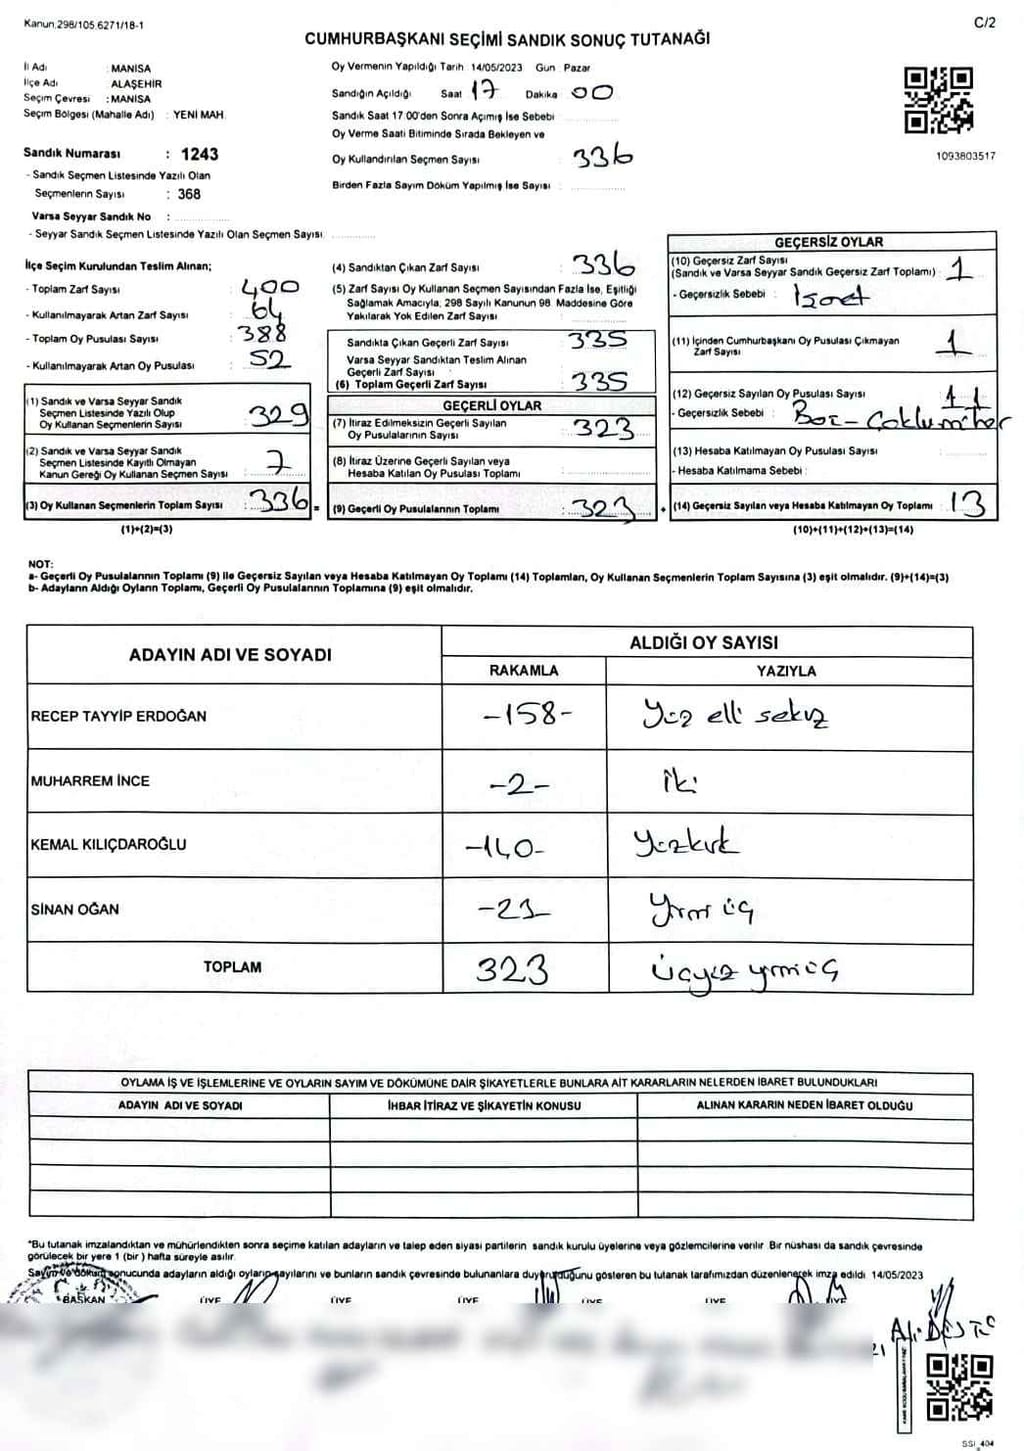 Kanun.298/105.6271/18-1
C/2
CUMHURBAŞKANI SEÇİMİ SANDIK SONUÇ TUTANAĞI
İl Adı : MANİSA
İlçe Adı : ALAŞEHİR
Seçim Çevresi : MANİSA
Seçim Bölgesi (Mahalle Adı) : YENİ MAH.
Sandık Numarası : 1243
- Sandık Seçmen Listesinde Yazılı Olan
Seçmenlerin Sayısı : 368
Varsa Seyyar Sandık No :
- Seyyar Sandık Seçmen Listesinde Yazılı Olan Seçmen Sayısı:
Oy Vermenin Yapıldığı Tarih: 14/05/2023 Gün: Pazar
Sandığın Açıldığı Saat 17 Dakika 00
Sandık Saat 17:00'den Sonra Açımış İse Sebebi
Oy Verme Saati Bitiminde Sırada Bekleyen ve
Oy Kullandırılan Seçmen Sayısı : 336
Birden Fazla Sayım Döküm Yapılmış İse Sayısı :
1093803517
İlçe Seçim Kurulundan Teslim Alınan;
- Toplam Zarf Sayısı : 400
- Kullanılmayarak Artan Zarf Sayısı : 64
- Toplam Oy Pusulası Sayısı : 388
- Kullanılmayarak Artan Oy Pusulası : 52
(1) Sandık ve Varsa Seyyar Sandık
Seçmen Listesinde Yazılı Olup
Oy Kullanan Seçmenlerin Sayısı : 329
(2) Sandık ve Varsa Seyyar Sandık
Seçmen Listesinde Kayıtlı Olmayan
Kanun Gereği Oy Kullanan Seçmen Sayısı : 7
(3) Oy Kullanan Seçmenlerin Toplam Sayısı : 336 =
(1)+(2)=(3)
(4) Sandıktan Çıkan Zarf Sayısı : 336
(5) Zarf Sayısı Oy Kullanan Seçmen Sayısından Fazla İse, Eşitliği
Sağlamak Amacıyla, 298 Sayılı Kanunun 98. Maddesine Göre
Yakılarak Yok Edilen Zarf Sayısı :
Sandıkta Çıkan Geçerli Zarf Sayısı : 335
Varsa Seyyar Sandıktan Teslim Alınan
Geçerli Zarf Sayısı :
(6) Toplam Geçerli Zarf Sayısı : 335
GEÇERLİ OYLAR
(7) İtiraz Edilmeksizin Geçerli Sayılan
Oy Pusulalarının Sayısı : 323
(8) İtiraz Üzerine Geçerli Sayılan veya
Hesaba Katılan Oy Pusulası Toplamı :
(9) Geçerli Oy Pusulalarının Toplamı : 323 +
GEÇERSİZ OYLAR
(10) Geçersiz Zarf Sayısı
(Sandık ve Varsa Seyyar Sandık Geçersiz Zarf Toplamı) : 1
- Geçersizlik Sebebi : İşaret
(11) İçinden Cumhurbaşkanı Oy Pusulası Çıkmayan
Zarf Sayısı : 1
(12) Geçersiz Sayılan Oy Pusulası Sayısı : 11
- Geçersizlik Sebebi : Boş-Çoklu mühür
(13) Hesaba Katılmayan Oy Pusulası Sayısı :
- Hesaba Katılmama Sebebi :
(14) Geçersiz Sayılan veya Hesaba Katılmayan Oy Toplamı : 13
(10)+(11)+(12)+(13)=(14)
NOT:
a- Geçerli Oy Pusulalarının Toplamı (9) ile Geçersiz Sayılan veya Hesaba Katılmayan Oy Toplamı (14) Toplamları, Oy Kullanan Seçmenlerin Toplam Sayısına (3) eşit olmalıdır. (9)+(14)=(3)
b- Adayların Aldığı Oyların Toplamı, Geçerli Oy Pusulalarının Toplamına (9) eşit olmalıdır.
ADAYIN ADI VE SOYADI
ALDIĞI OY SAYISI
RAKAMLA YAZIYLA
RECEP TAYYİP ERDOĞAN -158- Yüz elli sekiz
MUHARREM İNCE -2- İki
KEMAL KILIÇDAROĞLU -140- Yüzkırk
SİNAN OĞAN -23- Yirmi üç
TOPLAM 323 Üçyüz yirmiüç
OYLAMA İŞ VE İŞLEMLERİNE VE OYLARIN SAYIM VE DÖKÜMÜNE DAİR ŞİKAYETLERLE BUNLARA AİT KARARLARIN NELERDEN İBARET BULUNDUKLARI
ADAYIN ADI VE SOYADI İHBAR İTİRAZ VE ŞİKAYETİN KONUSU ALINAN KARARIN NEDEN İBARET OLDUĞU
*Bu tutanak imzalandıktan ve mühürlendikten sonra seçime katılan adayların ve talep eden siyasi partilerin sandık kurulu üyelerine veya gözlemcilerine verilir. Bir nüshası da sandık çevresinde
görülecek bir yere 1 (bir) hafta süreyle asılır.
Sayım ve döküm sonucunda adayların aldığı oyların sayılarını ve bunların sandık çevresinde bulunanlara duyurulduğunu gösteren bu tutanak tarafımızdan düzenlenerek imza edildi. 14/05/2023
BAŞKAN ÜYE ÜYE ÜYE ÜYE ÜYE ÜYE
SSİ_404